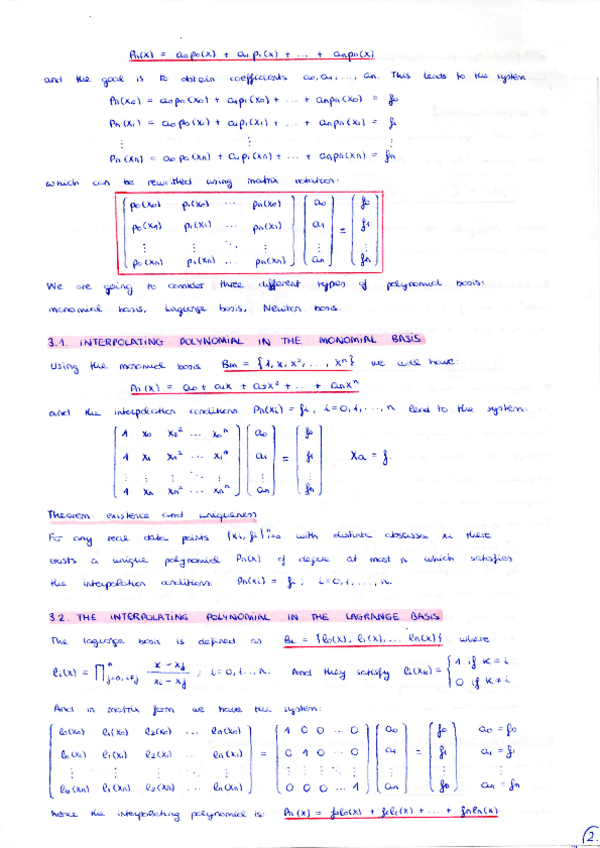 Pn(x) = a0p0(x) + a1p1(x) + ... + anpn(x)
and the goal is to obtain coefficients a0, a1, ..., an. This leads to the system
Pn(x0) = a0p0(x0) + a1p1(x0) + ... + anpn(x0) = f0
Pn(x1) = a0p0(x1) + a1p1(x1) + ... + anpn(x1) = f1
⋮ ⋮ ⋮
Pn(xn) = a0p0(xn) + a1p1(xn) + ... + anpn(xn) = fn
which can be rewritted using matrix notation:
p0(x0) p1(x0) ... pn(x0) a0 f0
p0(x1) p1(x1) ... pn(x1) a1 = f1
⋮ ⋮ ⋱ ⋮ ⋮ ⋮
p0(xn) p1(xn) ... pn(xn) an fn
We are going to consider three different types of polynomial basis:
monomial basis, Lagrange basis, Newton basis.
3.1. INTERPOLATING POLYNOMIAL IN THE MONOMIAL BASIS
Using the monomial basis Bm = {1, x, x², ..., xⁿ} we will have:
Pn(x) = a0 + a1x + a2x² + ... + anxⁿ
and the interpolation conditions Pn(xi) = fi, i=0,1,...,n lead to the system:
1 x0 x0² ... x0ⁿ a0 f0
1 x1 x1² ... x1ⁿ a1 = f1 Xa = f.
⋮ ⋮ ⋮ ⋱ ⋮ ⋮ ⋮
1 xn xn² ... xnⁿ an fn
Theorem: existence and uniqueness
For any real data points {xi, fi}ⁿi=0 with distinct abscissa xi there
exists a unique polynomial Pn(x) of degree at most n which satisfies
the interpolation conditions: Pn(xi) = fi ; i=0,1,...,n.
3.2. THE INTERPOLATING POLYNOMIAL IN THE LAGRANGE BASIS
The Lagrange basis is defined as BL = {l0(x), l1(x), ... ln(x)} where
li(x) = ∏ⁿj=0, i≠j (x - xj)/(xi - xj) ; i=0,1,...n. And they satisfy li(xk) = { 1 if k=i
0 if k≠i
And in matrix form we have the system:
l0(x0) l1(x0) l2(x0) ... ln(x0) 1 0 0 ... 0 a0 f0 a0 = f0
l0(x1) l1(x1) l2(x1) ... ln(x1) = 0 1 0 ... 0 a1 = f1 a1 = f1
⋮ ⋮ ⋮ ⋱ ⋮ ⋮ ⋮ ⋮ ⋱ ⋮ ⋮ ⋮ ⋮
l0(xn) l1(xn) l2(xn) ... ln(xn) 0 0 0 ... 1 an fn an = fn
hence the interpolating polynomial is: Pn(x) = f0l0(x) + f1l1(x) + ... + fnln(x)
2.